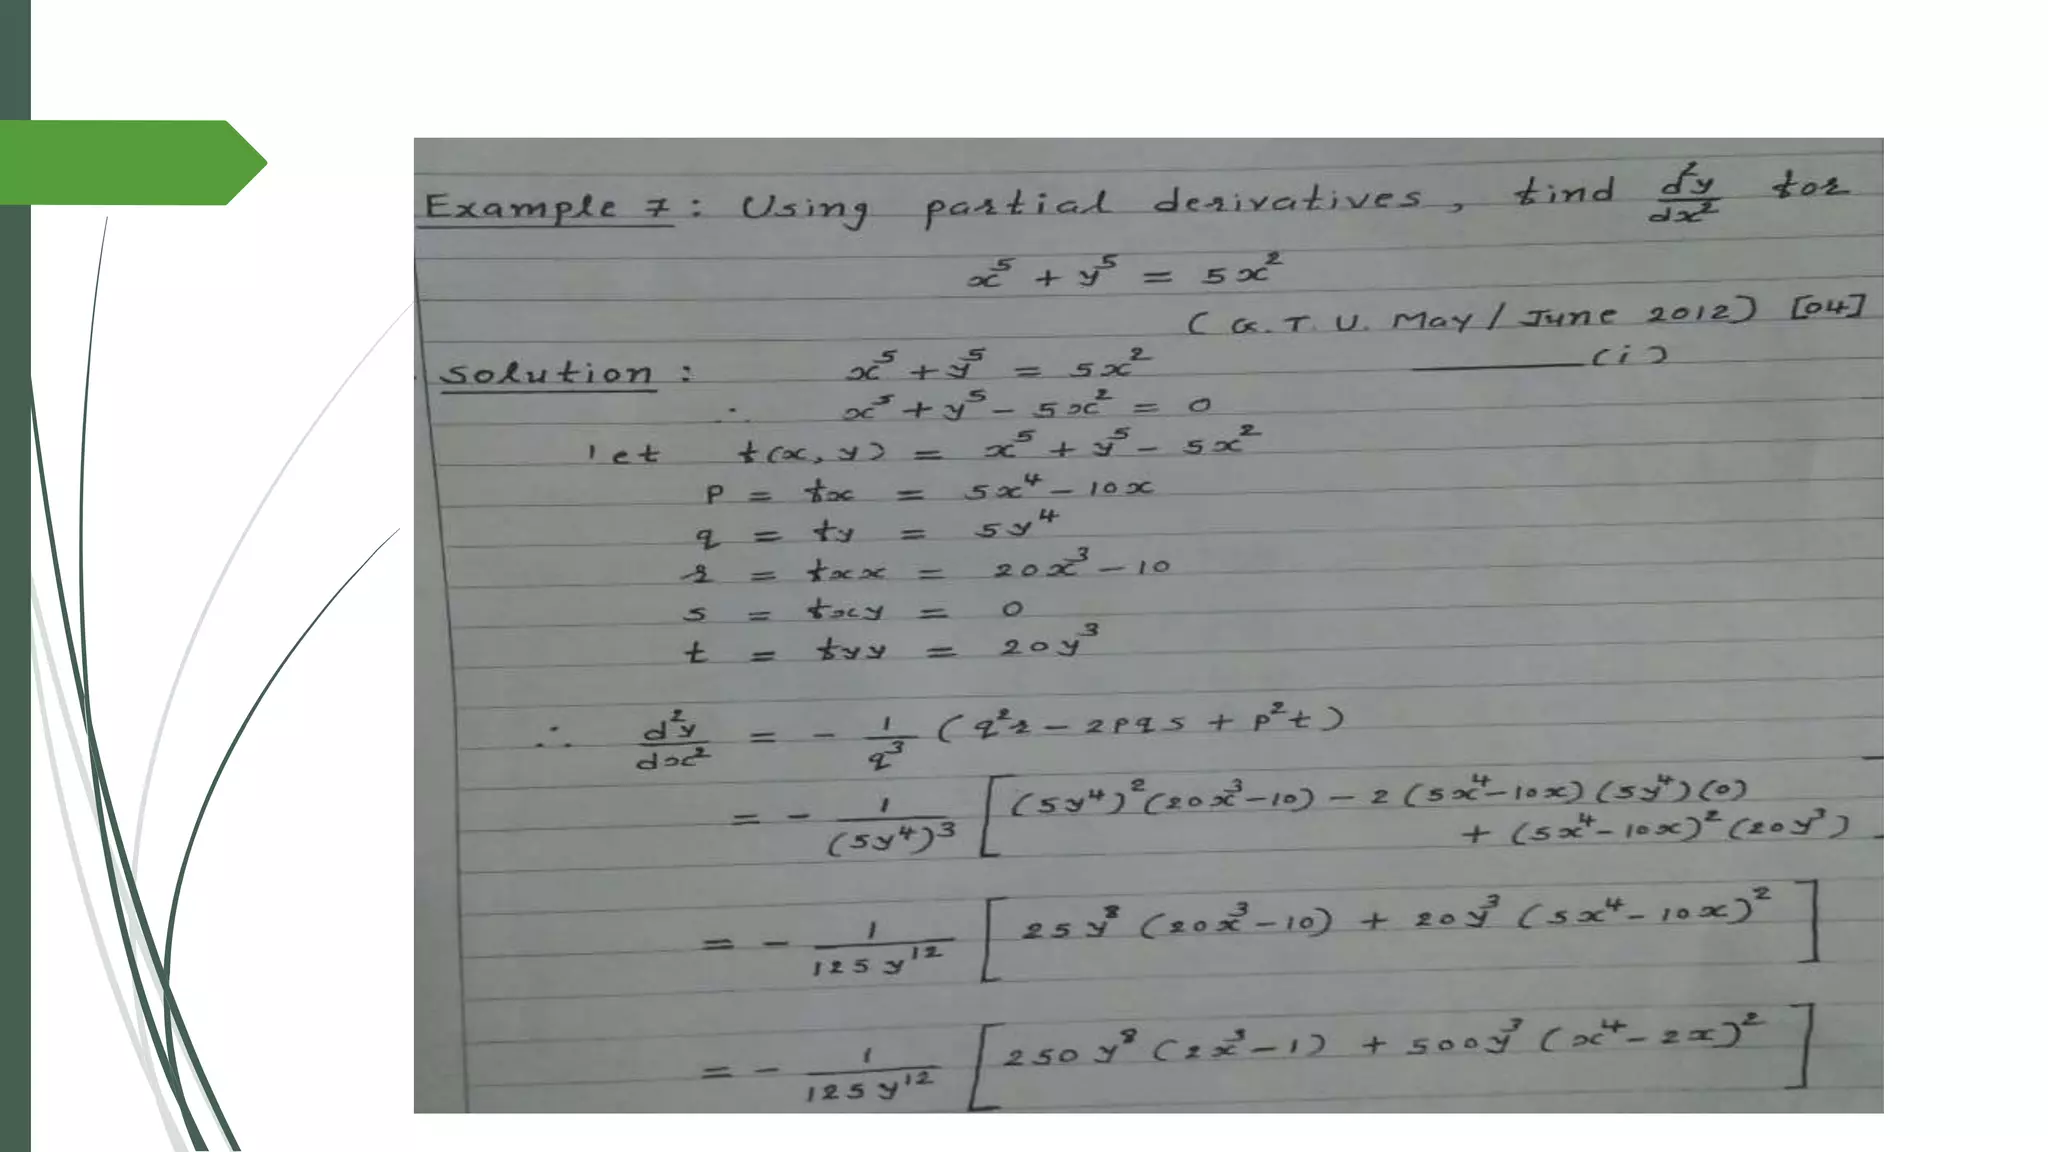 Example 7: Using partial derivatives, find d²y/dx² for
x⁵ + y⁵ = 5x²
(G.T.U. May/June 2012) [04]
Solution: x⁵ + y⁵ = 5x² ——— (i)
∴ x⁵ + y⁵ - 5x² = 0
let f(x, y) = x⁵ + y⁵ - 5x²
P = fx = 5x⁴ - 10x
q = fy = 5y⁴
r = fxx = 20x³ - 10
s = fxy = 0
t = fyy = 20y³
∴ d²y/dx² = - 1/q³ (q²r - 2pqs + p²t)
= - 1/(5y⁴)³ [(5y⁴)²(20x³-10) - 2(5x⁴-10x)(5y⁴)(0)
+ (5x⁴-10x)²(20y³)
= - 1/125y¹² [25y⁸(20x³-10) + 20y³(5x⁴-10x)²]
= - 1/125y¹² [250y⁸(2x³-1) + 500y³(x⁴-2x)²]